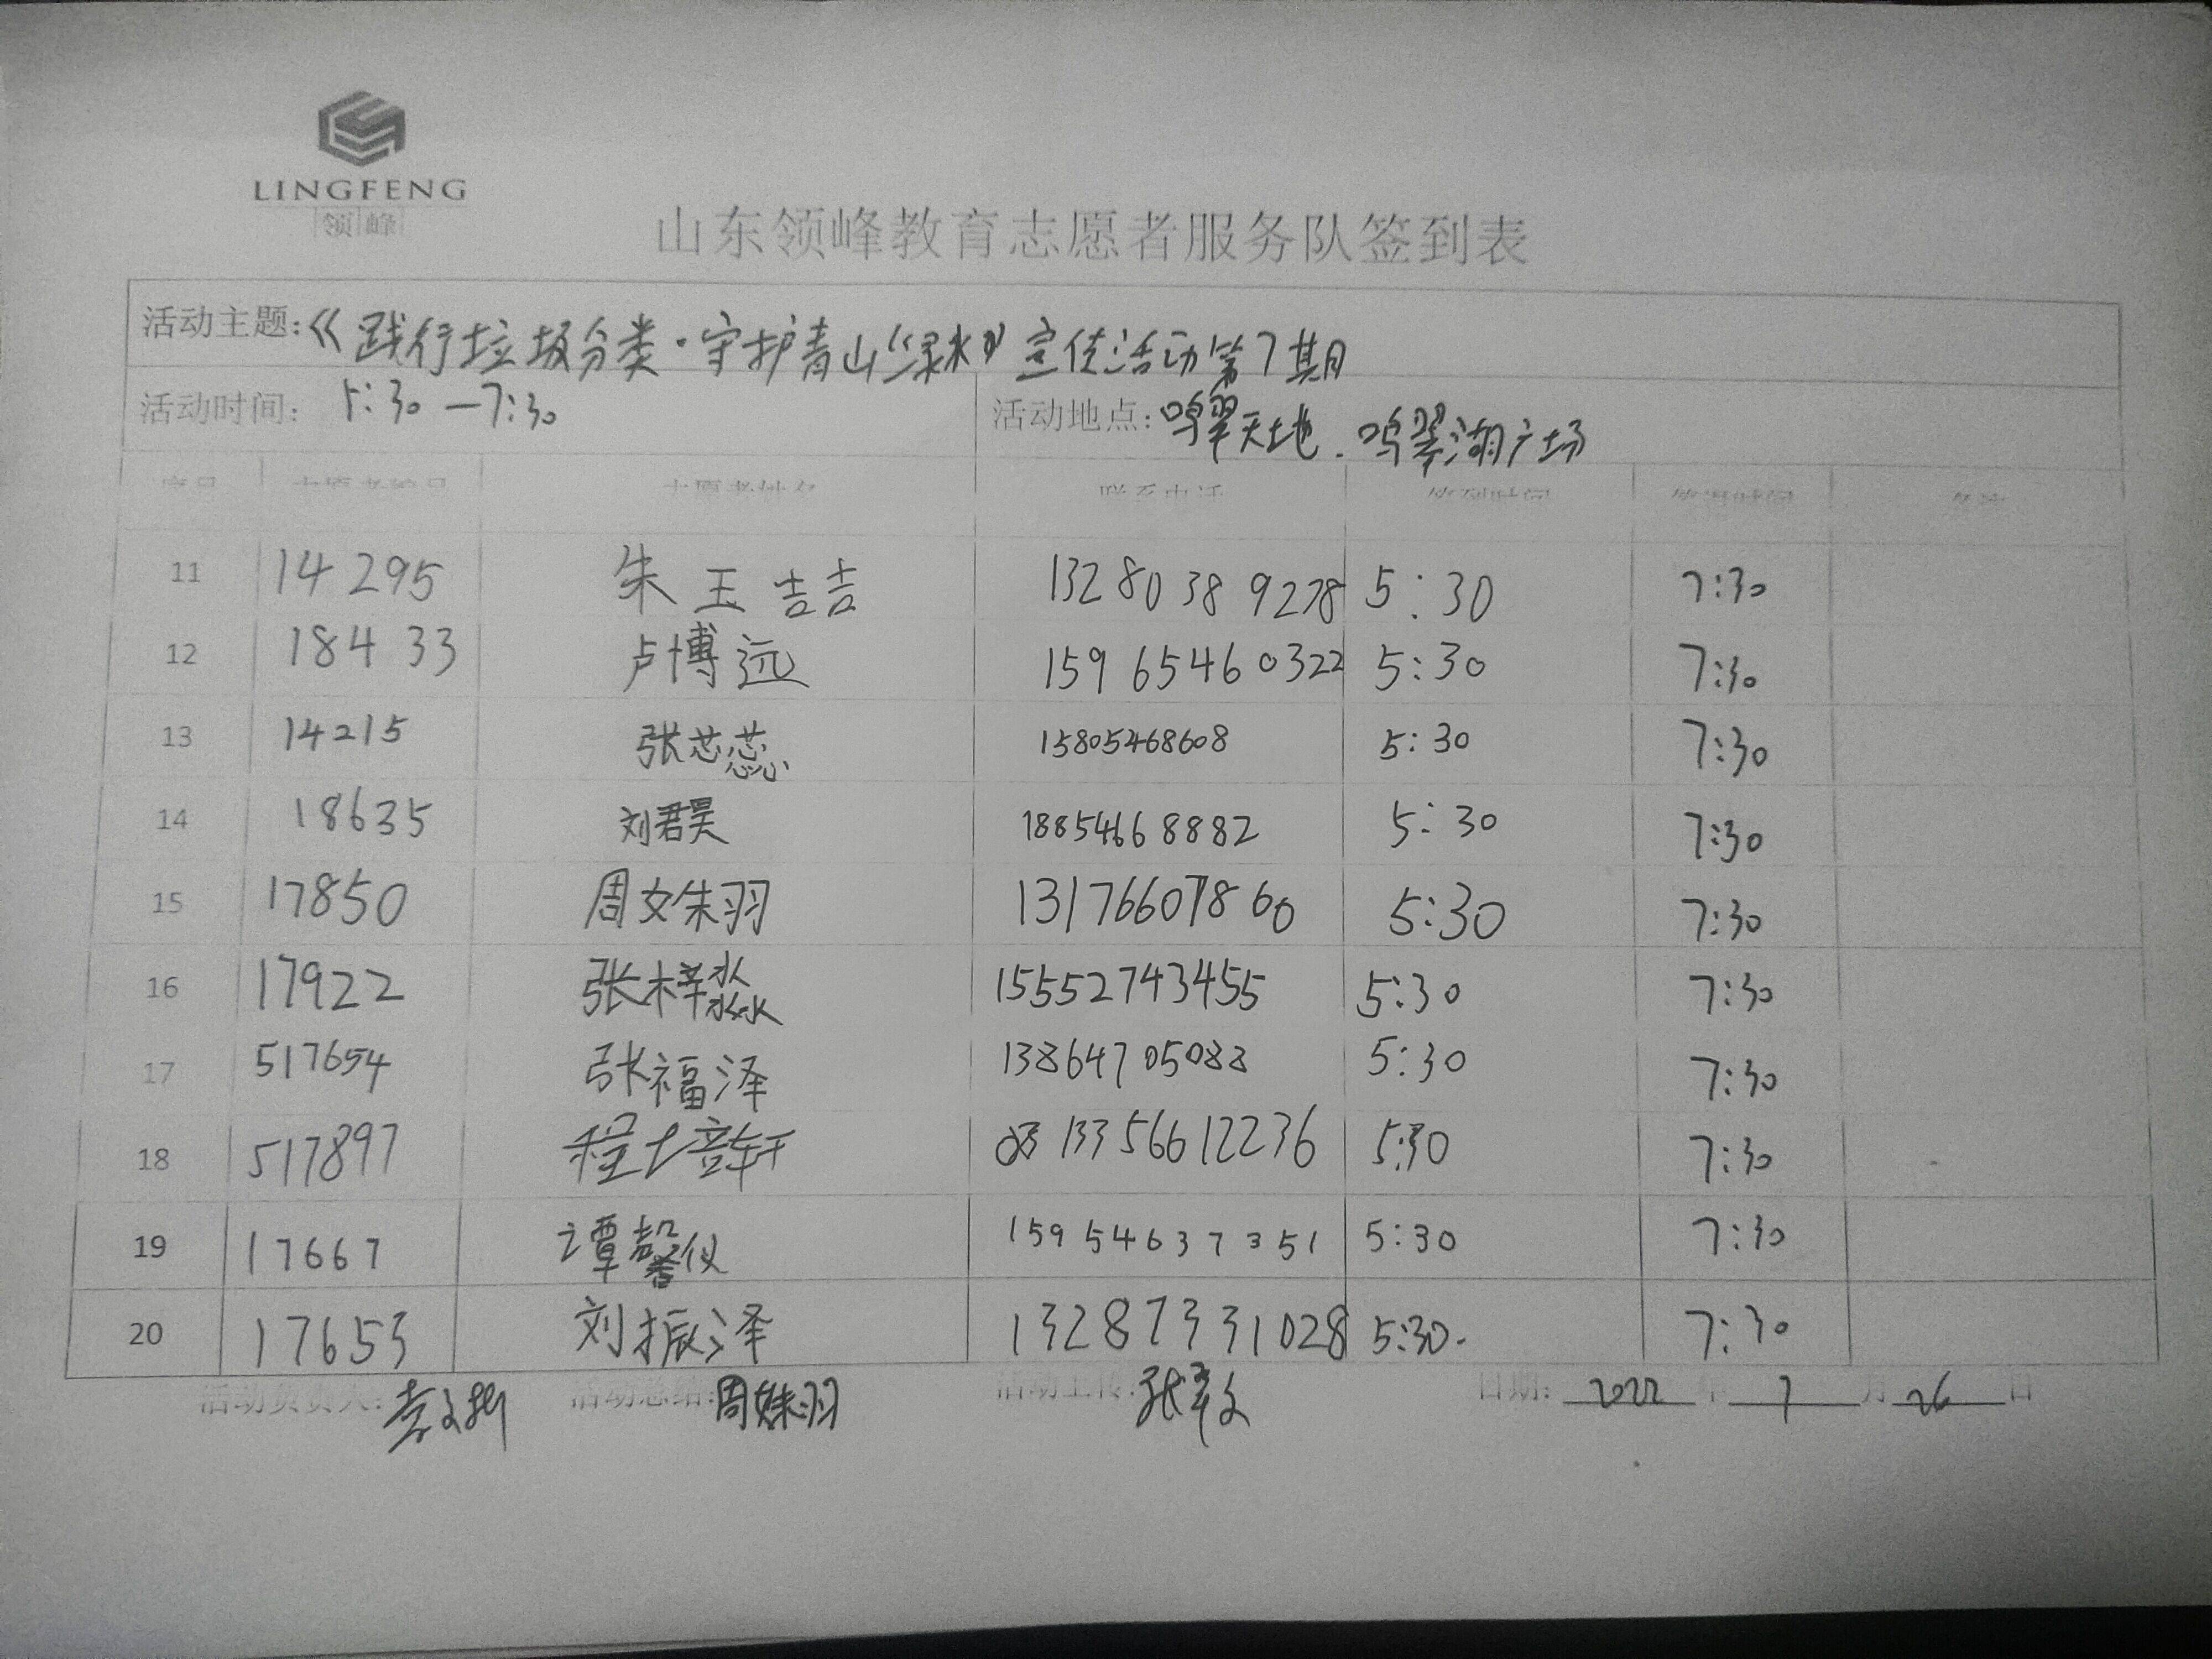 LINGFENG
领峰
山东领峰教育志愿者服务队签到表
活动主题:《践行垃圾分类·守护青山绿水》宣传活动第7期
活动时间: 5:30—7:30 活动地点:鸣翠天地.鸣翠湖广场
序号 志愿者编号 志愿者姓名 联系电话 签到时间 签退时间 备注
11 14295 朱玉喆 13280389278 5:30 7:30
12 18433 卢博远 15965460322 5:30 7:30
13 14215 张芯蕊 15805468608 5:30 7:30
14 18635 刘君昊 18854668882 5:30 7:30
15 17850 周姝羽 13176607860 5:30 7:30
16 17922 张梓淼 15552743455 5:30 7:30
17 517654 张福泽 13864705088 5:30 7:30
18 517897 程培轩 13356612236 5:30 7:30
19 17667 谭馨仪 15954637351 5:30 7:30
20 17653 刘振泽 13287331028 5:30. 7:30
活动负责人: 活动总结:周姝羽 活动上传: 日期: 2022 年 7 月 26 日